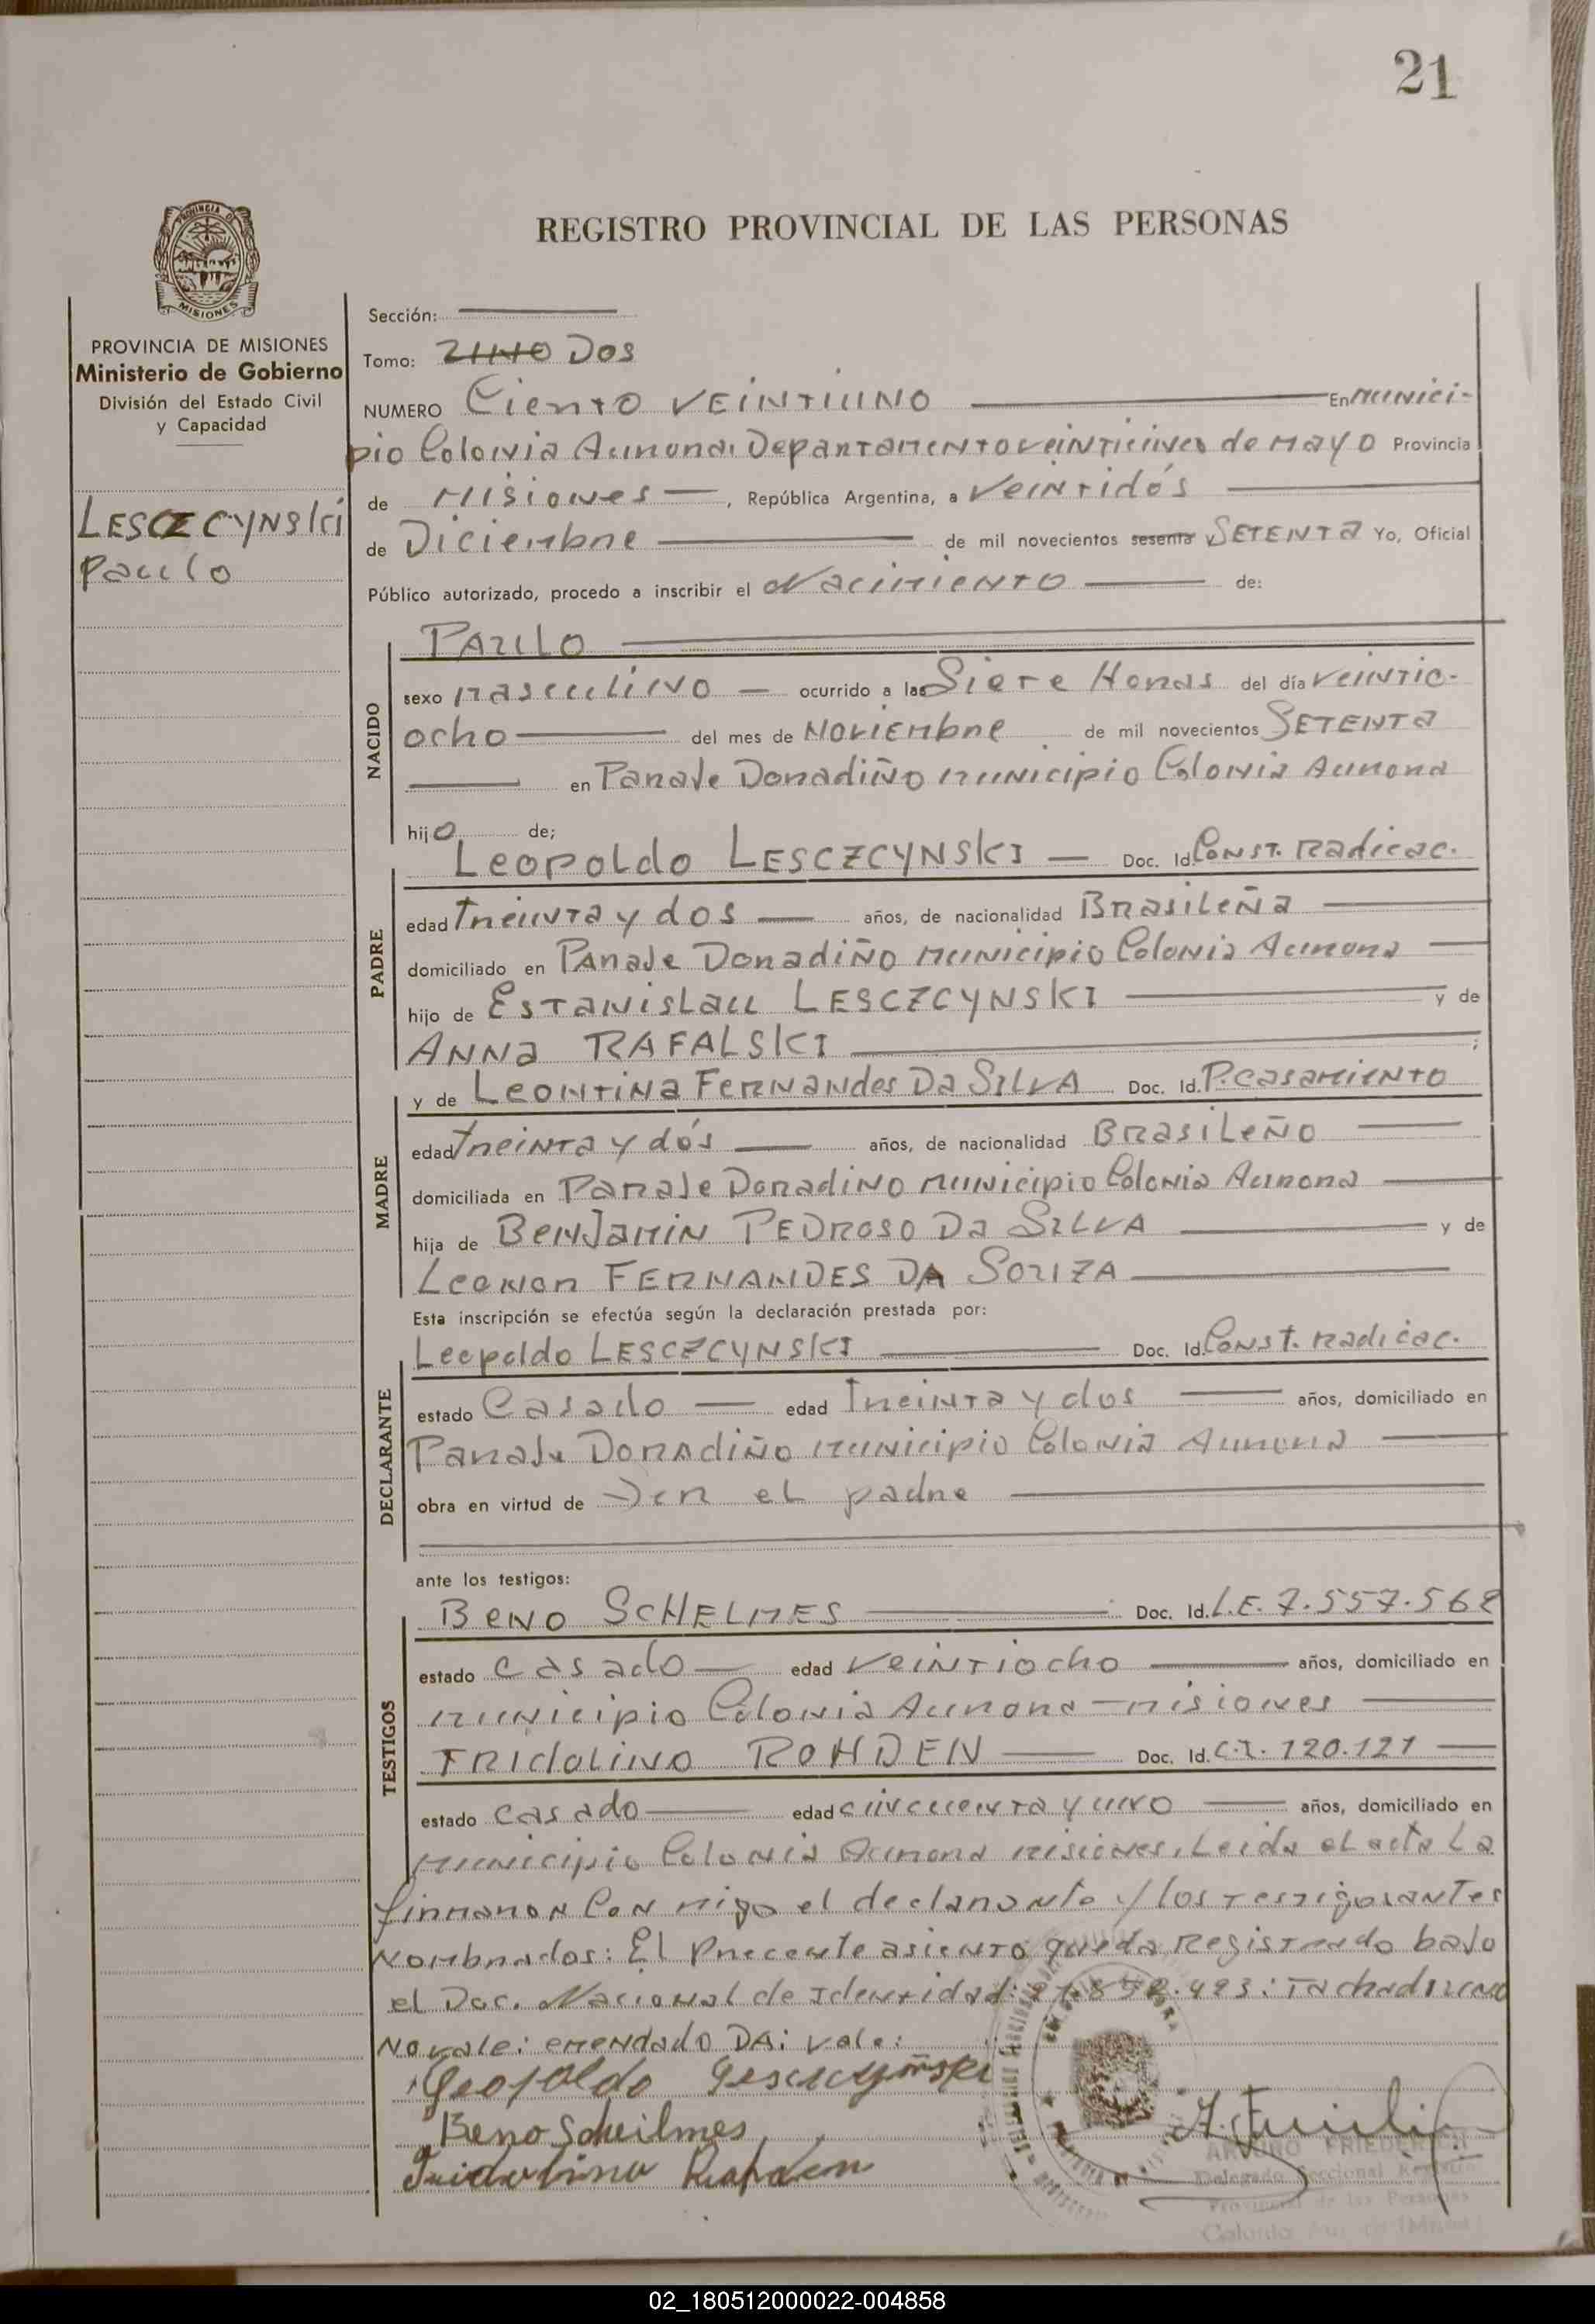 21
PROVINCIA DE
MISIONES
REGISTRO PROVINCIAL DE LAS PERSONAS
PROVINCIA DE MISIONES
Ministerio de Gobierno
División del Estado Civil
y Capacidad
LESCZCYNSKI
Paulo
Sección:
Tomo: Dos
NUMERO Ciento VEINTIUNO En Munici-
pio Colonia Aurora, Departamento veinticinco de Mayo Provincia
de Misiones, República Argentina, a Veintidós
de Diciembre de mil novecientos sesenta SETENTA Yo, Oficial
Público autorizado, procedo a inscribir el Nacimiento de:
NACIDO
PAULO
sexo masculino ocurrido a las Siete Horas del día veintio-
ocho del mes de Noviembre de mil novecientos SETENTA
en Paraje Doradiño municipio Colonia Aurora
hijo de;
PADRE
Leopoldo LESCZCYNSKI Doc. Id. Const. Radicac.
edad Treinta y dos años, de nacionalidad Brasileña
domiciliado en Paraje Doradiño municipio Colonia Aurora
hijo de Estanislau LESCZCYNSKI y de
Anna RAFALSKI ;
MADRE
y de Leontina Fernandes Da SILVA Doc. Id. P. casamiento
edad Treinta y dós años, de nacionalidad Brasileño
domiciliada en Paraje Doradino municipio Colonia Aurora
hija de Benjamin PEDROSO Da SILVA y de
Leonor FERNANDES DA SOUZA
Esta inscripción se efectúa según la declaración prestada por:
DECLARANTE
Leopoldo LESCZCYNSKI Doc. Id. Const. radicac.
estado Casado edad Treinta y dos años, domiciliado en
Paraje Doradiño municipio Colonia Aurora
obra en virtud de Ser el padre
ante los testigos:
TESTIGOS
Beno SCHELMES Doc. Id. L.E. 7.557.568
estado casado edad Veintiocho años, domiciliado en
municipio Colonia Aurora - misiones
FRIDOLINO ROHDEN Doc. Id. C.I. 120.121
estado casado edad cincuenta y uno años, domiciliado en
municipio Colonia Aurora misiones, Leida el acta La
firmaron Con migo el declarante y los testigos antes
Nombrados: El Precente asiento queda Registrado bajo
el Doc. Nacional de Identidad: Tachado: uno
No vale: emendado DA: vale:
Leopoldo
Beno Scheilmes
Fridolino Rohden
ARTURO FRIEDERICH
Delegado Seccional Registro
Provincial de las Personas
Colonia
02_180512000022-004858